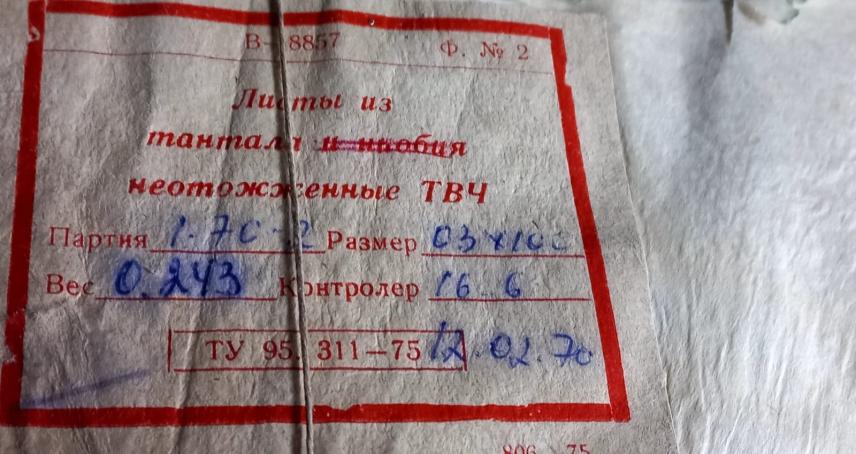 В- 8857 Ф. № 2
Листы из
тантала и ниобия
неотожженные ТВЧ
Партия Размер
Вес 0.243 Контролер 16 6
ТУ 95. 311—75 12.02.70
806 75